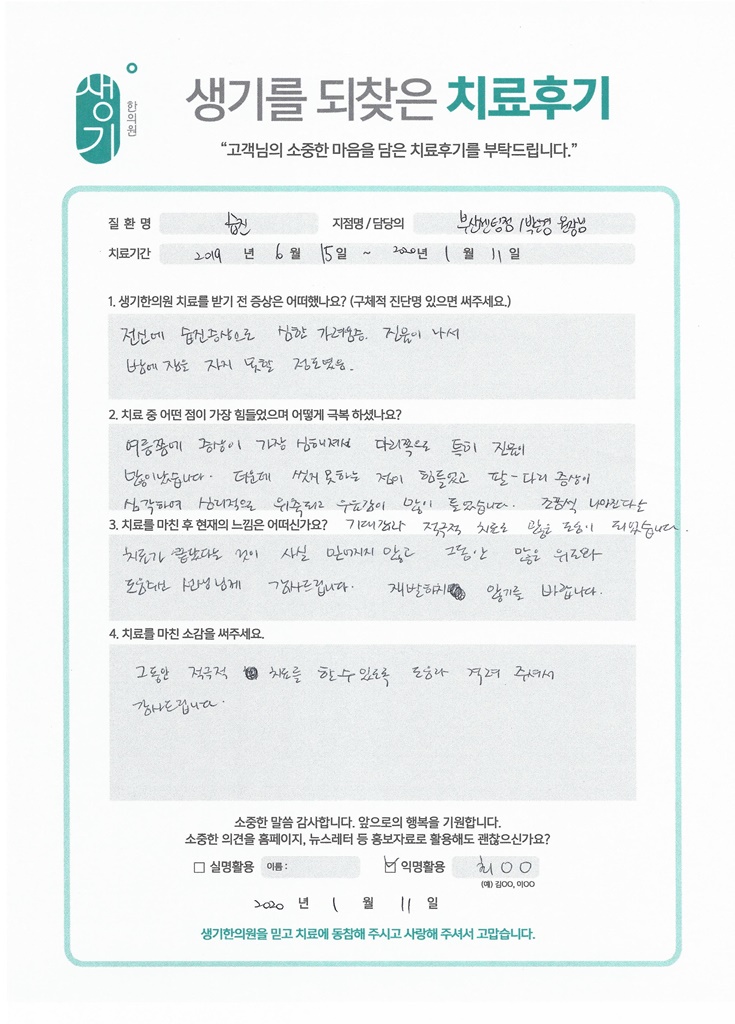 생기
한의원
생기를 되찾은 치료후기
“고객님의 소중한 마음을 담은 치료후기를 부탁드립니다.”
질 환 명 습진 지점명 / 담당의 부산센텀점 / 박은경 원장님
치료기간 2019 년 6 월 15 일 ~ 2020 년 1 월 11 일
1. 생기한의원 치료를 받기 전 증상은 어떠했나요? (구체적 진단명 있으면 써주세요.)
전신에 습진증상으로 심한 가려움증. 진물이 나서
밤에 잠을 자지 못할 정도였음.
2. 치료 중 어떤 점이 가장 힘들었으며 어떻게 극복 하셨나요?
여름쯤에 증상이 가장 심해져서 다리쪽으로 특히 진물이
많이났습니다. 더운데 씻지 못하는 점이 힘들었고 팔-다리 증상이
심각하여 심리적으로 위축되고 우울감이 많이 들었습니다. 조금씩 나아진다는
3. 치료를 마친 후 현재의 느낌은 어떠신가요? 기대감과 적극적 치료로 많은 도움이 되었습니다.
치료가 끝났다는 것이 사실 믿어지지 않고 그동안 많은 위로와
도움주신 선생님께 감사드립니다. 재발하지 않기를 바랍니다.
4. 치료를 마친 소감을 써주세요.
그동안 적극적 치료를 할 수 있도록 도움과 격려 주셔서
감사드립니다.
소중한 말씀 감사합니다. 앞으로의 행복을 기원합니다.
소중한 의견을 홈페이지, 뉴스레터 등 홍보자료로 활용해도 괜찮으신가요?
실명활용 이름 : 익명활용 최○○
(예) 김OO, 이OO
2020 년 1 월 11 일
생기한의원을 믿고 치료에 동참해 주시고 사랑해 주셔서 고맙습니다.